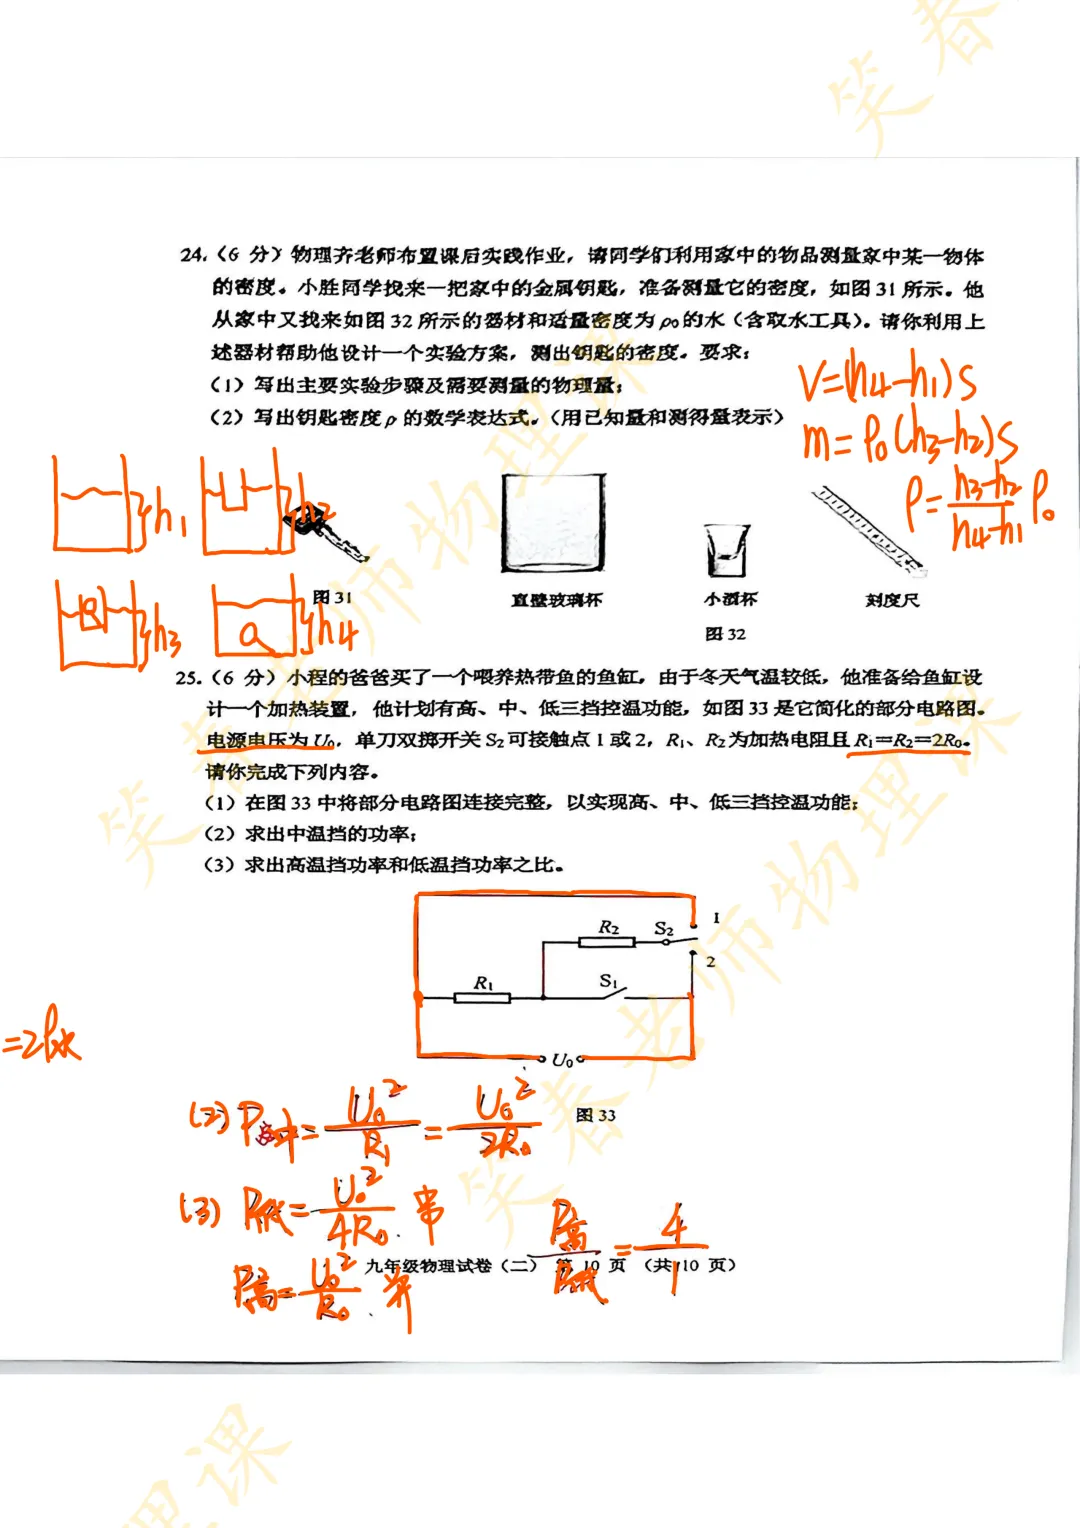 笑春
24.（6 分）物理齐老师布置课后实践作业，请同学们利用家中的物品测量家中某一物体
的密度。小胜同学找来一把家中的金属钥匙，准备测量它的密度，如图 31 所示。他
从家中又找来如图 32 所示的器材和适量密度为 ρ₀的水（含取水工具）。请你利用上
述器材帮助他设计一个实验方案，测出钥匙的密度。要求：
（1）写出主要实验步骤及需要测量的物理量；
（2）写出钥匙密度 ρ 的数学表达式。（用已知量和测得量表示）
V=(h4-h1)S
m=ρ₀(h3-h2)S
ρ=\frac{h3-h2}{h4-h1}ρ₀
h1
h2
图 31
直壁玻璃杯
小酒杯
刻度尺
图 32
h3
h4
25.（6 分）小程的爸爸买了一个喂养热带鱼的鱼缸，由于冬天气温较低，他准备给鱼缸设
计一个加热装置，他计划有高、中、低三挡控温功能，如图 33 是它简化的部分电路图。
电源电压为 U₀，单刀双掷开关 S₂可接触点 1 或 2，R₁、R₂为加热电阻且 R₁＝R₂＝2R₀。
请你完成下列内容。
（1）在图 33 中将部分电路图连接完整，以实现高、中、低三挡控温功能；
（2）求出中温挡的功率；
（3）求出高温挡功率和低温挡功率之比。
R₂ S₂ 1
2
R₁ S₁
U₀
图 33
=2ρ水
(2) P中=\frac{U₀²}{R₁}=\frac{U₀²}{2R₀}
(3) P低=\frac{U₀²}{4R₀} 串
P高=\frac{U₀²}{R₀} 并
\frac{P高}{P低}=\frac{4}{1}
九年级物理试卷（二） 第 10 页 （共 10 页）
笑春老师物理课
笑春老师物理课
笑春老师物理课
理课